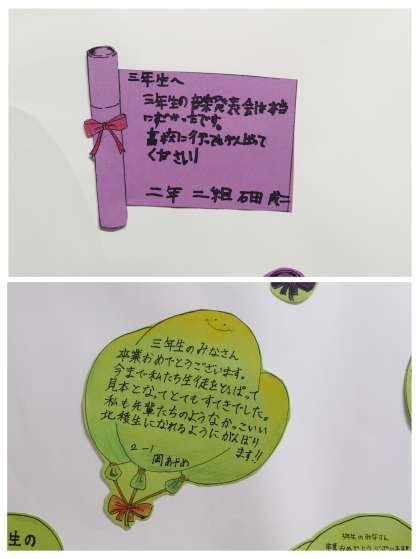 三年生へ
三年生の音楽発表会は本当
にすごかったです。
高校に行ってもがんばって
ください!
二年 二組 石田 虎二
三年生のみなさん
卒業おめでとうございます。
今まで私たち生徒をひっぱって
見本となってとてもすてきでした。
私も先輩たちのようなかっこいい
北稜生になれるようにがんばり
ます!!
2-1
岡あやめ
生の